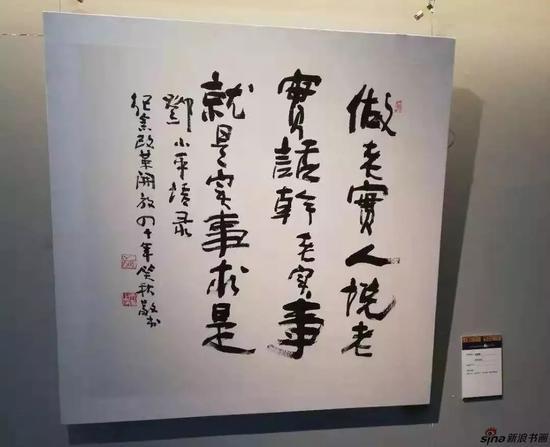 做老實人説老
實話幹老实事
就是实事求是
鄧小平语录
纪念改革開放四十年笑秋敬书
sina新浪书画